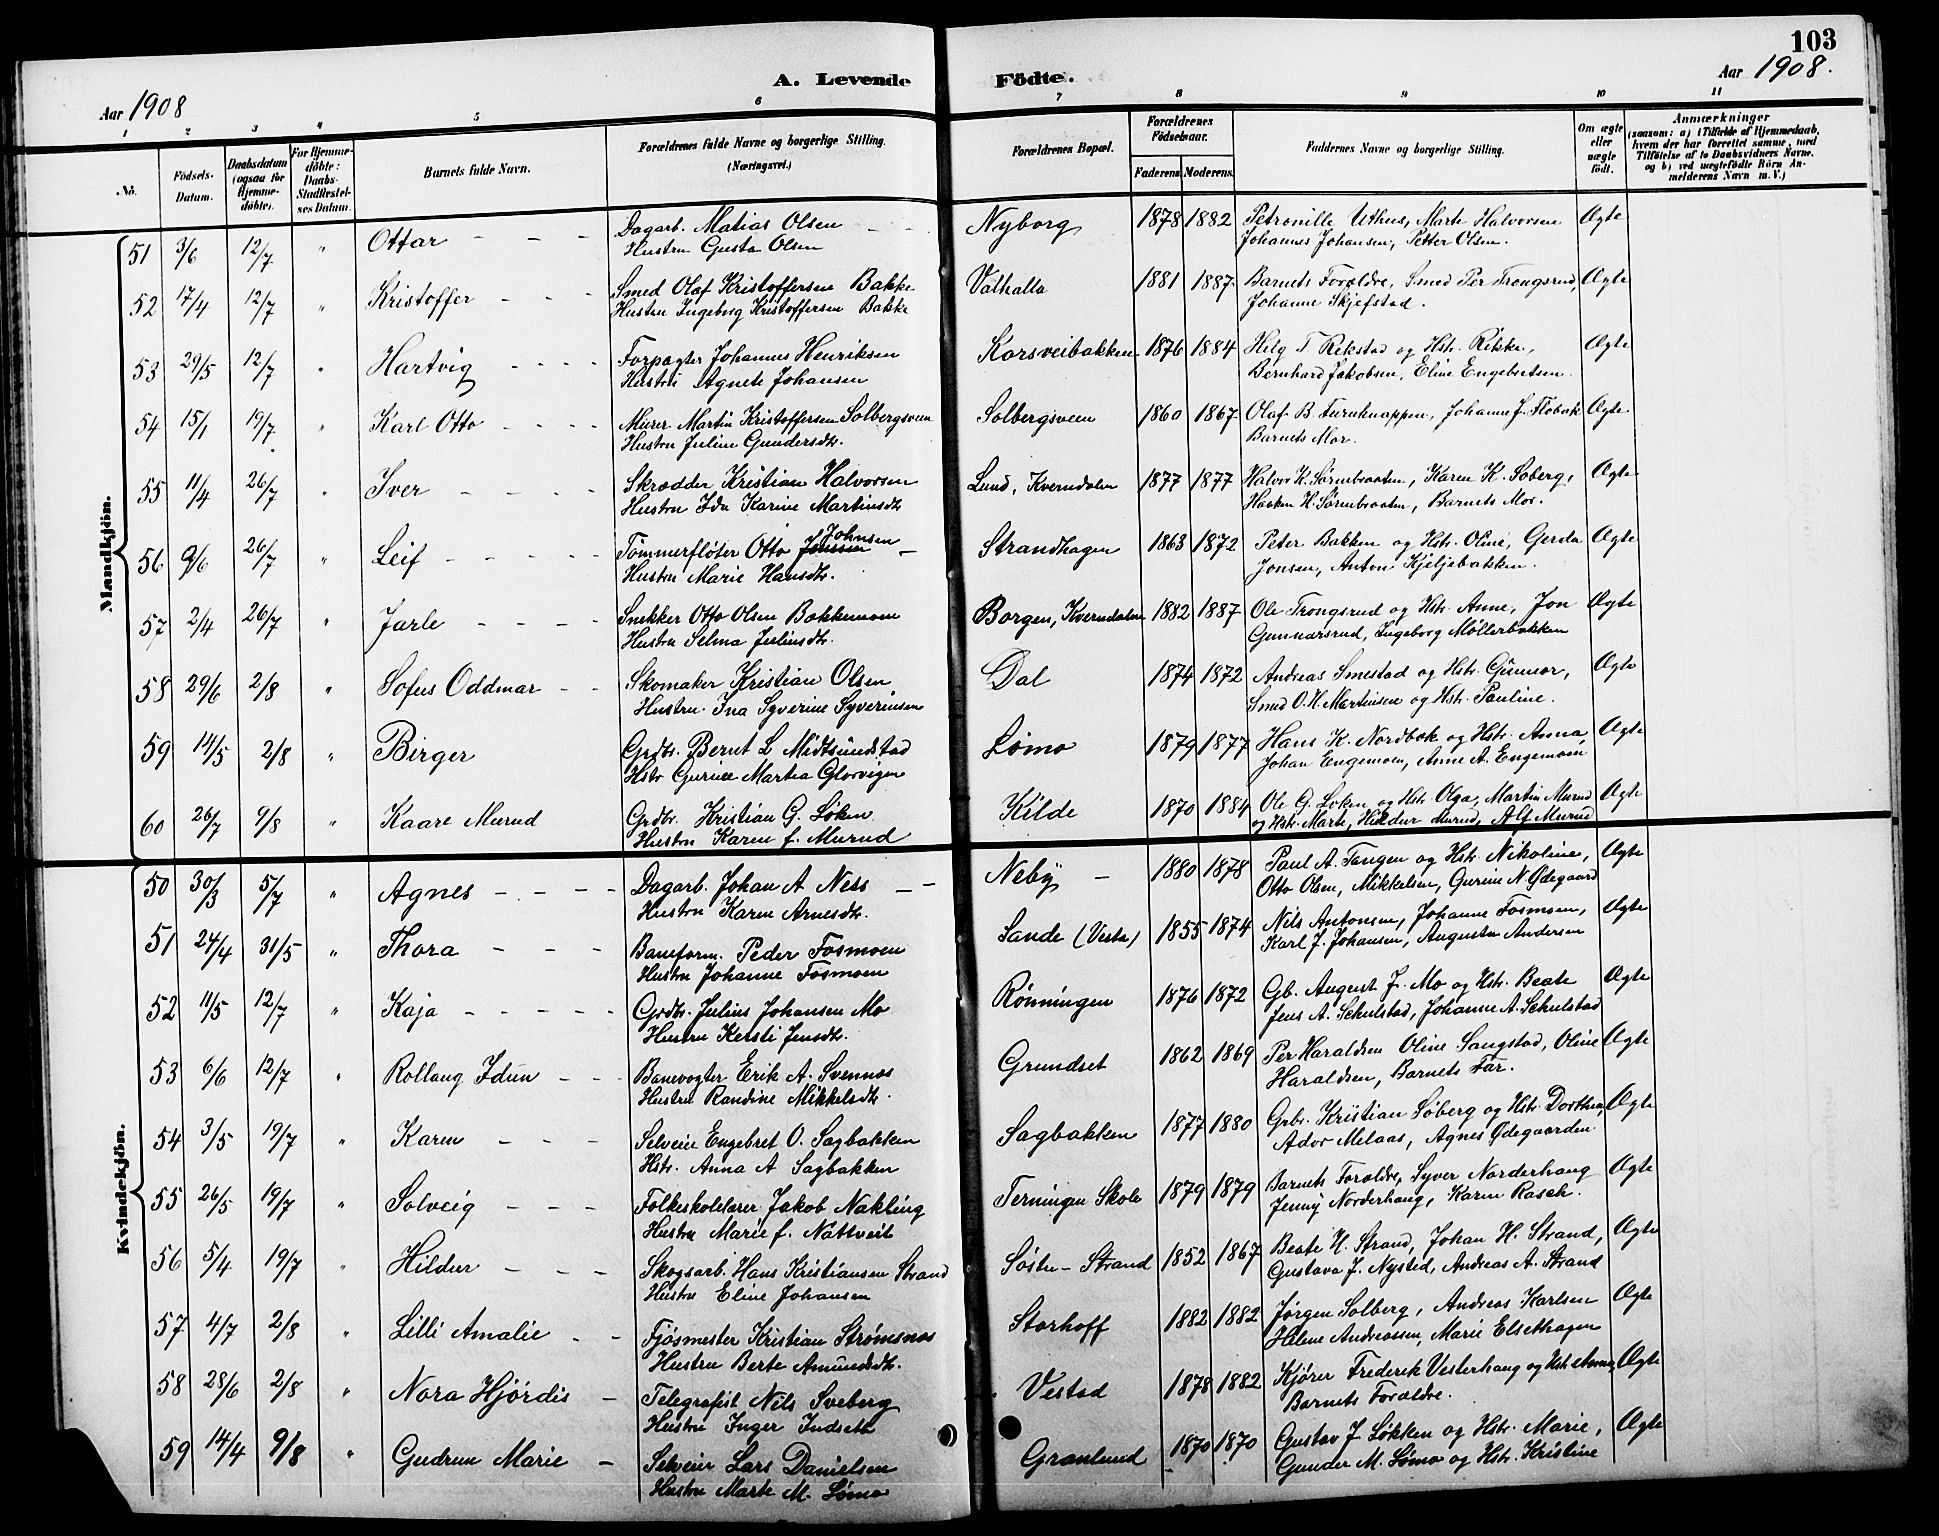 103
A. Levende Födte.
Aar 1908
Aar 1908.
1 2 3 4 5 6 7 8 9 10 11
No.
Födsels-Datum.
Daabsdatum (ogsaa for Hjemme-döbte).
For Hjemme-döbte: Daabs-Stadfæstel-ses Datum.
Barnets fulde Navn.
Forældrenes fulde Navne og borgerlige Stilling. (Næringsvei.)
Forældrenes Bopæl.
Forældrenes Födselsaar.
Faderens. Moderens.
Faddernes Navne og borgerlige Stilling.
Om ægte eller uægte födt.
Anmærkninger
(saasom: a) i Tilfælde af Hjemmedaab, hvem der har forrettet samme, med Tilföielse af to Daabsvidners Navne, og b) ved uægtefödte Börn An-melderens Navn m. V.)
Mandkjön.
51 3/6 12/7 " Ottar - - - Dagarb. Matias Olsen - - Nyborg 1878 1882 Petronille Uthus, Marte Halvorsen Ægte
Hustru Gusta Olsen Johannes Johansen, Petter Olsen.
52 17/4 12/7 " Kristoffer - - - Smed Olaf Kristoffersen Bakke Valhalla 1881 1887 Barnets Foraldre, Smed Per Trongsrud, Ægte
Hustru Ingeborg Kristoffersen Bakke Johanne Skjefstad.
53 29/5 12/7 " Hartvig - - - - Forpagter Johannes Henriksen Korsveibakken 1876 1884 Helg T. Rekstad og Hstr. Rikke, Ægte
Hustru Agnete Johansen Bernhard Jakobsen, Eline Engebretsen.
54 15/1 19/7 " Karl Otto - - - - Murer Martin Kristoffersen Solbergsveen Solbergsveen 1860 1867 Olaf B. Furuknappen, Johanne J. Flobak Ægte
Hustru Juline Gundersdtr. Barnets Mor.
55 11/4 26/7 " Iver - - - - Skrædder Kristian Halvorsen Lund, Kverndalen 1877 1877 Halvor K. Sørmbraaten, Karen K. Soberg, Ægte
Hustru Ida Karine Martinsdtr Haaken H. Sørmbraaten, Barnets Mor.
56 9/6 26/7 " Leif - - - - Tømmerfløter Otto Johnsen - Strandhagen 1863 1872 Peter Bakken og Hstr. Oline, Gerda Ægte
Hustru Marie Hansdtr. Jonsen, Anton Kjeljebakken.
57 2/4 26/7 " Jarle - - - - Snekker Otto Olsen Bakkemoen Borgen, Kverndalen 1882 1887 Ole Trongsrud og Hstr. Anne, Jon Ægte
Hustru Selma Juliusdtr. Gunnarsrud, Ingeborg Møllerbakken
58 29/6 2/8 " Sofus Oddmar - - Skomaker Kristian Olsen Dal 1874 1872 Andreas Smestad og Hstr. Gunnor, Ægte
Hustru. Ina Syverine Syverinsen Smed O. H. Martinsen og Hstr. Pauline.
59 14/5 2/8 " Birger Grdbr. Bernt L Midtsundstad Lømo 1879 1877 Hans K. Nordbak og Hstr. Anna, Ægte
Hstr Gurine Martea Glorvigen Johan Engemoen, Anne A. Engemoen
60 26/7 9/8 " Kaare Murud Grdbr. Kristian G. Løken Kilde 1870 1884 Ole G. Løken og Hstr Olga, Martin Murud Ægte
Hustru Karen f. Murud og Hstr. Marte, Hildur Murud, A. G. Murud
Kvindekjön.
50 30/3 5/7 " Agnes - - - - Dagarb. Johan A Ness - - Neby - 1880 1878 Paul A. Tangen og Hstr. Nikoline, Ægte
Hustru Karen Arnesdtr. Otto Olsen, Mikkelsen, Gurine N. Ødegaard
51 24/4 31/5 " Thora - - - Baneform. Peder Fosmoen Sande (Vesta) 1855 1874 Nils Antonsen, Johanne Fosmoen, Ægte
Hustru Johanne Fosmoen Karl J. Johansen, Augusta Andersen
52 11/5 12/7 " Kaja - - - - - Grdbr. Julius Johansen Mo Rønningen 1876 1872 Gb. August J. Mo og Hstr. Beate Ægte
Hustru Kersti Jensdtr. Jens A. Schulstad, Johanne A. Schulstad
53 6/6 12/7 " Rollaug Idun - - - Banevogter Erik A. Svennes Grundset 1862 1869 Per Haraldsen Oline Sangstad, Oline Ægte
Hustru Randine Mikkelsdtr. Haraldsen, Barnets Far.
54 3/5 19/7 " Karen - - - Selveier Engebret O. Sagbakken Sagbakken 1877 1880 Grbr. Kristian Søberg og Hstr Dorthea, Ægte
Hstr. Anna A Sagbakken Ador Melaas, Agnes Ødegaarden.
55 26/5 19/7 " Solveig - - - Folkeskolelærer Jakob Nakling Terningen Skole 1879 1879 Barnets Foraldre, Syver Norderhaug Ægte
Hustru Marie f. Nattveit Jenny Norderhaug, Karen Rasch.
56 5/4 19/7 " Hildur - - - Skogsarb. Hans Kristiansen Strand Søstu-Strand 1852 1867 Beate H. Strand, Johan H. Strand, Ægte
Hustru Eline Johansen Gustava J. Nysted, Andreas A. Strand
57 4/7 2/8 " Lilli Amalie - - Fjøsmester Kristian Strømsnes Storhoff 1882 1882 Jørgen Solberg, Andreas Karlsen Ægte
Hustru Berte Amundsdtr. Helene Andreassen, Marie Elsethagen
58 28/6 2/8 " Nora Hjørdis - Telegrafist Nils Sveberg Vestad 1878 1882 Kjører Frederek Vesterhaug og Hstr. Anna, Ægte
Hustru Inger Indseth Barnets Foraldre.
59 14/4 9/8 " Gudrun Marie - Selveier Lars Danielsen Granlund 1870 1870 Gustav J Løkken og Hstr. Marie, Ægte
Hustru Marte M. Lømo Gunder M. Lømo og Hstr. Kristine